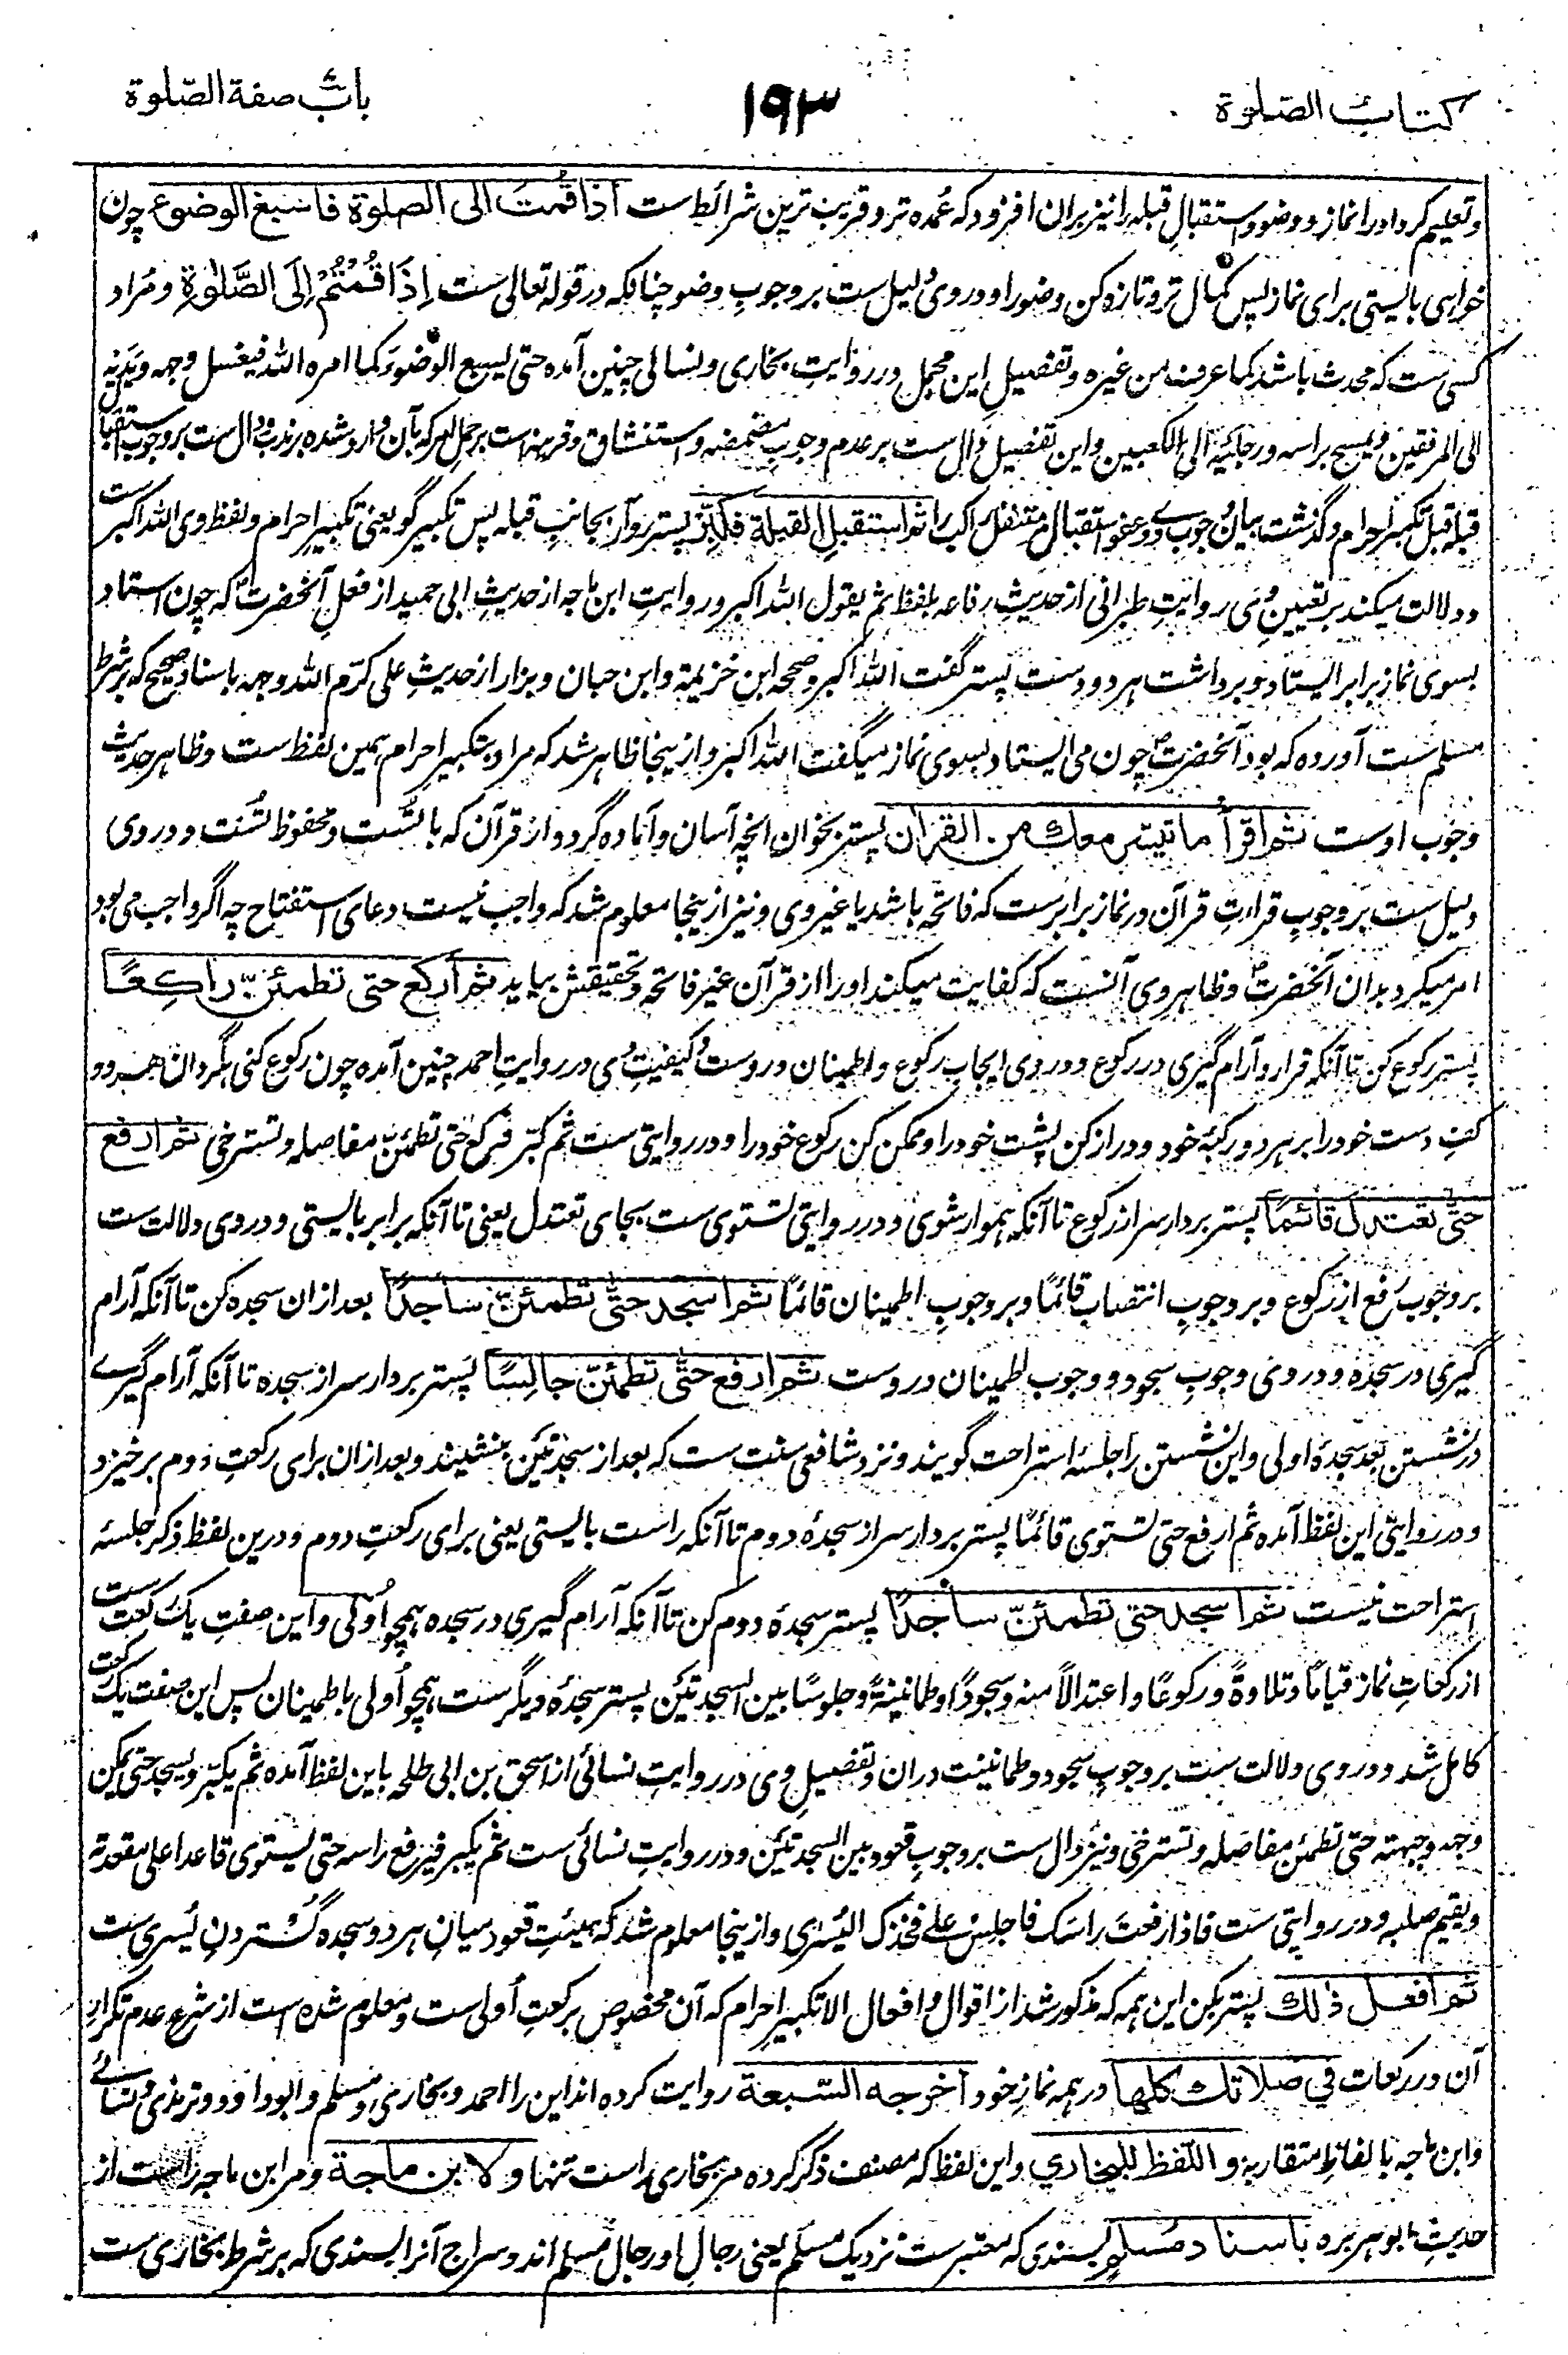 کتاب الصلوة
۱۹۳
باب صفة الصلوة
وتعلیم کرد او را نماز و وضو و استقبالِ قبله را نیز بران افزود که عُمده تر و قریب ترین شرائط ست اذا قُمتَ الی الصلوة فاسبغ الوضوء چون
خواهی بایستی برای نماز پس کمال تر و تازه کن وضو را و در وی دلیل ست بر وجوبِ وضو چنانکه در قوله تعالی ست اِذَا قُمْتُمْ اِلَی الصَّلٰوةِ و مُراد
کسی ست که محدث باشد کما عرفت من غیره و تفصیلِ این مجمل در روایتِ بخاری و نسائی چنین آمده حتی یسبغ الوضوءَ کما امره الله فیغسل وجهه ویدیه
الی المرفقین ویمسح براسه ورجلیه الی الکعبین و این تفصیل دال ست بر عدم وجوبِ مضمضه و استنشاق و قرینه است بر حملِ امر که بآن وارد شده بر ندب و دال ست بر وجوب استقبال
قبله قبل تکبیر احرام و گذشت بیان وجوب وی و عفو استقبال متنفل راکب را ثم استقبل القبلة فکبّر پستر روآر بجانبِ قبله پس تکبیر گو یعنی تکبیرِ احرام و لفظ وی الله اکبر ست
و دلالت میکند بر تعیینِ وی روایتِ طبرانی از حدیثِ رفاعه بلفظ ثم یقول الله اکبر و روایتِ ابن ماجه از حدیثِ ابی حمید از فعلِ آنحضرت ؐ که چون استاد
بسوی نماز برابر ایستاد و برداشت هر دو دست پستر گفت الله اکبر و صححه ابن خزیمة و ابن حبان و بزار از حدیثِ علی کرّم الله وجهه باسناد صحیح که بر شرط
مسلم ست آورده که بود آنحضرت ؐ چون می ایستاد بسوی نماز میگفت الله اکبر و ازینجا ظاهر شد که مراد بتکبیر احرام همین لفظ ست و ظاهر حدیث
وجوب اوست ثم اقرأ ما تیسر معك من القرآن پستر بخوان انچه آسان و آماده گردد از قرآن که با تُست و محفوظ تُست و در وی
دلیل ست بر وجوبِ قراءتِ قرآن در نماز برابرست که فاتحه باشد یا غیر وی و نیز ازینجا معلوم شد که واجب نیست دعای استفتاح چه اگر واجب می بود
امر میکرد بدان آنحضرت ؐ و ظاهر وی آنست که کفایت میکند او را از قرآن غیر فاتحه و تحقیقش بیاید ثم ارکع حتی تطمئنّ راکعًا
پستر رکوع کن تا آنکه قرار و آرام گیری در رکوع و در وی ایجابِ رکوع و اطمینان در وست و کیفیتِ وی در روایتِ احمد چنین آمده چون رکوع کنی بگردان هر دو
کفِ دست خود را بر هر دو رکبهٔ خود و دراز کن پشت خود را و ممکن کن رکوع خود را و در روایتی ست ثم کبّر فرکع حتی تطمئنّ مفاصله وتسترخی ثم ارفع
حتّی تعتدل قائمًا پستر بردار سر از رکوع تا آنکه هموار شوی و در روایتی تستوی ست بجای تعتدل یعنی تا آنکه برابر بایستی و در وی دلالت ست
بر وجوبِ رفع از رکوع و بر وجوبِ انتصاب قائمًا و بر وجوبِ اطمینان قائمًا ثم اسجد حتّی تطمئنّ ساجدًا بعد ازان سجده کن تا آنکه آرام
گیری در سجده و در وی وجوبِ سجود و وجوب اطمینان در وست ثم ارفع حتّی تطمئنّ جالِسًا پستر بردار سر از سجده تا آنکه آرام گیرے
در نشستن بعد سجدهٔ اولی و این نشستن را جلسهٔ استراحت گویند و نزد شافعی سنت ست که بعد از سجدتین بنشیند و بعد ازان برای رکعتِ دوم برخیزد
و در روایتی این لفظ آمده ثم ارفع حتی تستوی قائمًا پستر بردار سر از سجدهٔ دوم تا آنکه راست بایستی یعنی برای رکعتِ دوم و درین لفظ ذکر جلسهٔ
استراحت نیست ثم اسجد حتی تطمئنّ ساجدًا پستر سجدهٔ دوم کن تا آنکه آرام گیری در سجده همچو اُولی و این صفتِ یک رکعت ست
از رکعاتِ نماز قیامًا و تلاوةً و رکوعًا و اعتدالًا منه و سجودًا و طمانینةً و جلوسًا بین السجدتین پستر سجدهٔ دیگر ست همچو اُولی باطمینان پس این صفت یک رکعت
کامل شد و در وی دلالت ست بر وجوبِ سجود و طمانینت دران و تفصیلِ وی در روایتِ نسائی از اسحق بن ابی طلحه باین لفظ آمده ثم یکبّر ویسجد حتی یمکن
وجهه وجبهته حتی تطمئن مفاصله وتسترخی و نیز دال ست بر وجوبِ قعود بین السجدتین و در روایتِ نسائی ست ثم یکبر فیرفع راسه حتی یستوی قاعدا علی مقعدته
ویقیم صلبه و در روایتی ست فاذا رفعتَ راسَک فاجلِسْ علے فخذک الیُسرٰی و ازینجا معلوم شد که هیئتِ قعود میانِ هر دو سجده گُستردنِ یُسری ست
ثم افعل ذلك پستر بکن این همه که مذکور شد از اقوال و افعال الا تکبیر احرام که آن مخصوص برکعتِ اُولی ست و معلوم شده ست از شرع عدم تکرارِ
آن در رکعات فی صلاتك کلها در همه نمازِ خود اخرجه السّبعة روایت کرده اند این را احمد و بخاری و مسلم و ابوداود و ترمذی و نسائے
و ابن ماجه بالفاظِ متقاربه و اللّفظ للبخاري و این لفظ که مصنف ذکر کرده مر بخاری راست تنها و لابن ماجة و مر ابن ماجه راست از
حدیثِ ابوهریره باسناد مسلم بسندی که معتبر ست نزدیک مسلم یعنی رجالِ او رجالِ مسلم اند و سراج آنرا بسندی که بر شرط بخاری ست